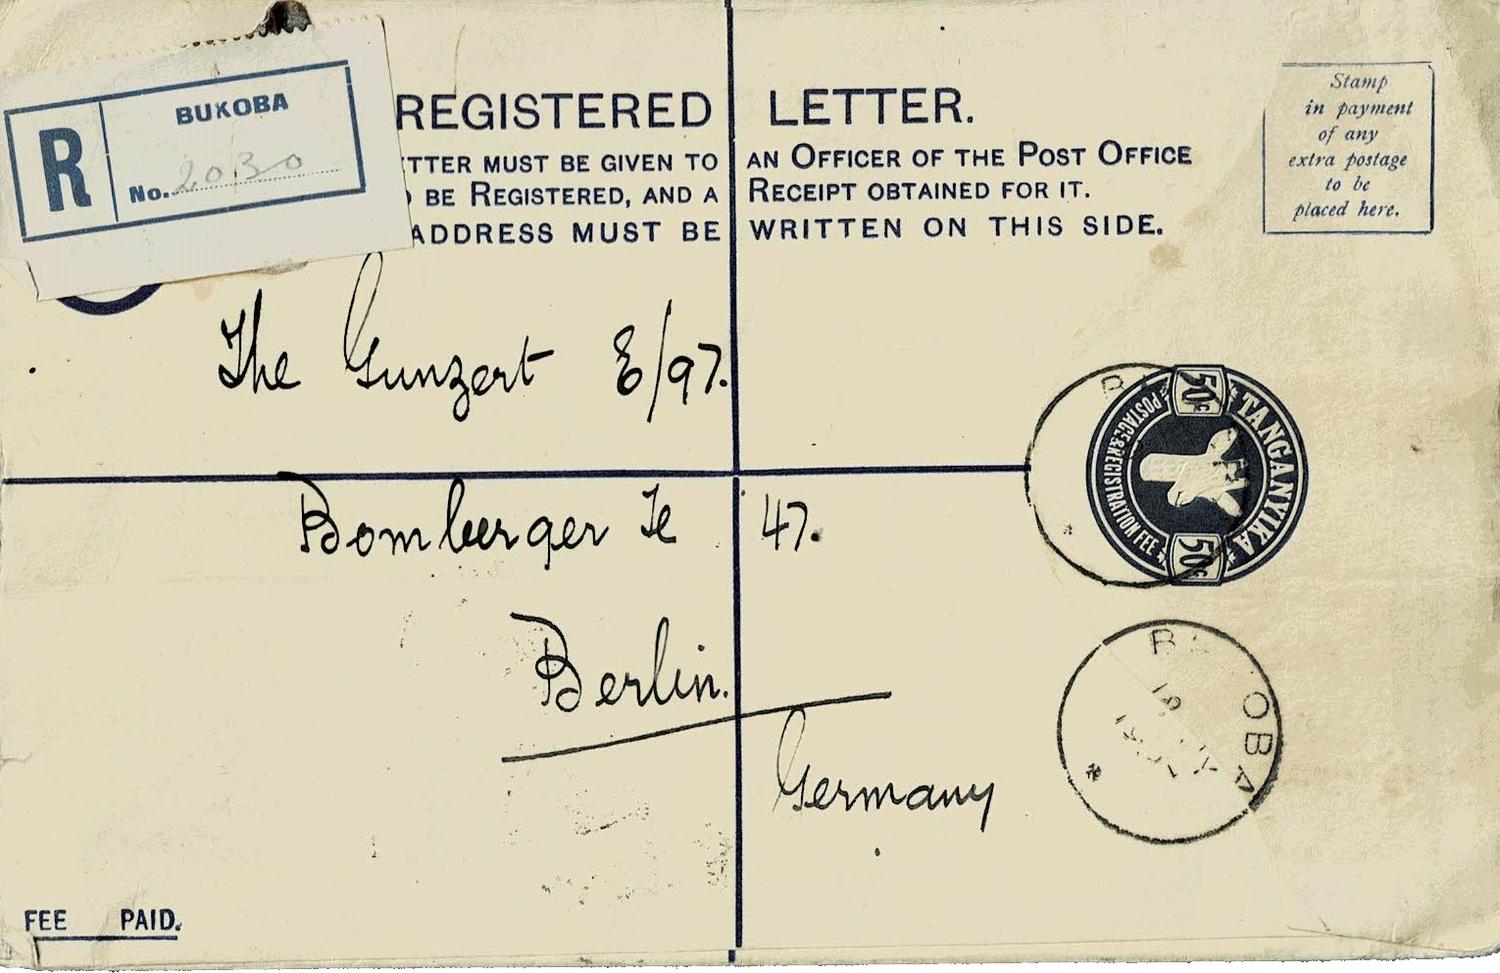 R
BUKOBA
No. 2030
REGISTERED LETTER.
TTER MUST BE GIVEN TO AN OFFICER OF THE POST OFFICE
BE REGISTERED, AND A RECEIPT OBTAINED FOR IT.
ADDRESS MUST BE WRITTEN ON THIS SIDE.
Stamp
in payment
of any
extra postage
to be
placed here.
The Gunzert E/97.
Bomberger Te 47.
Berlin.
Germany
TANGANYIKA
50c
POSTAGE & REGISTRATION FEE
50c
B OBA
FEE PAID.